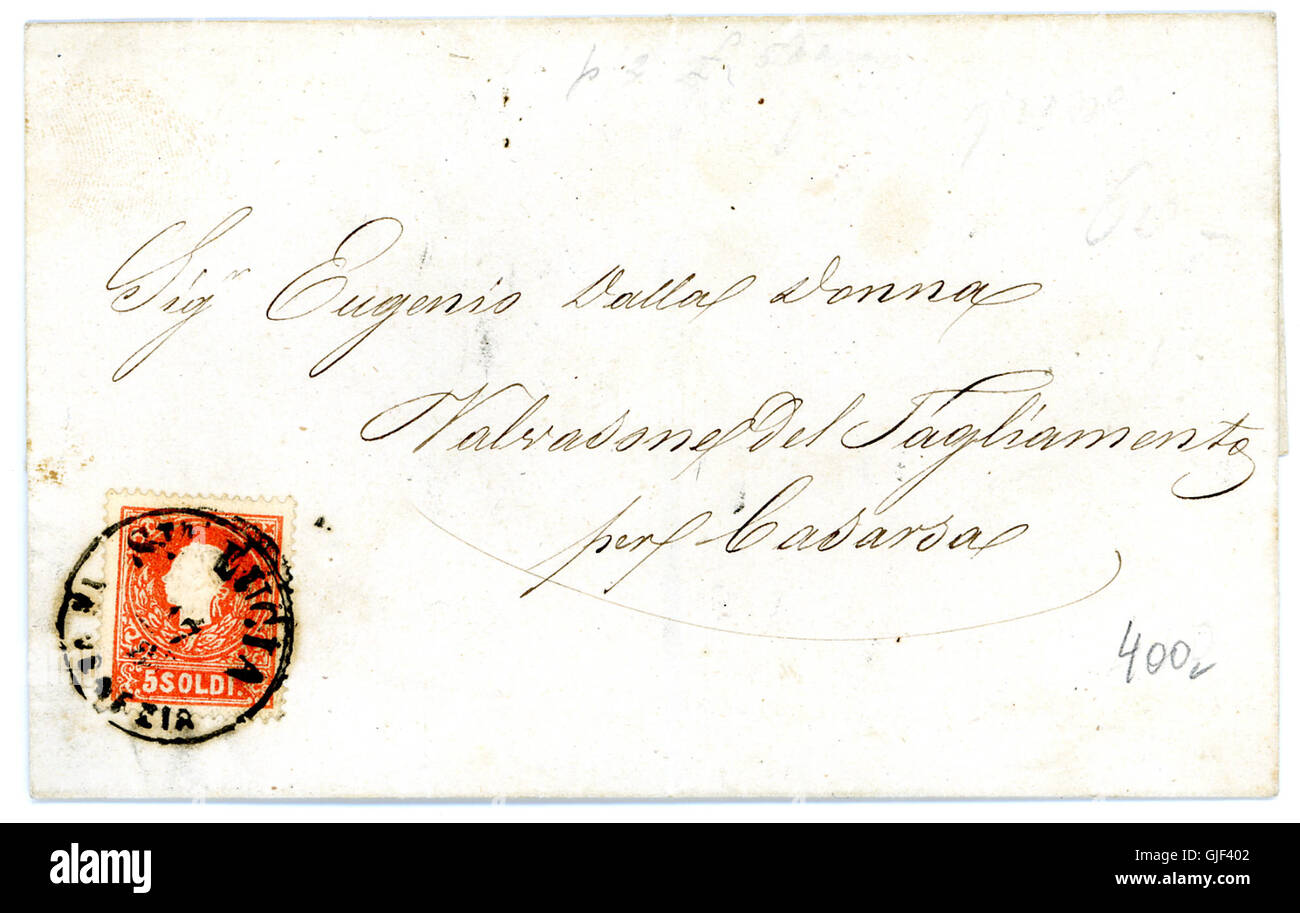 Sig.r Eugenio Dalla Donna
Valvasone Del Tagliamento
per Casarsa
400
LUCIA
5 SOLDI.
alamy
Image ID: GJF402
www.alamy.com